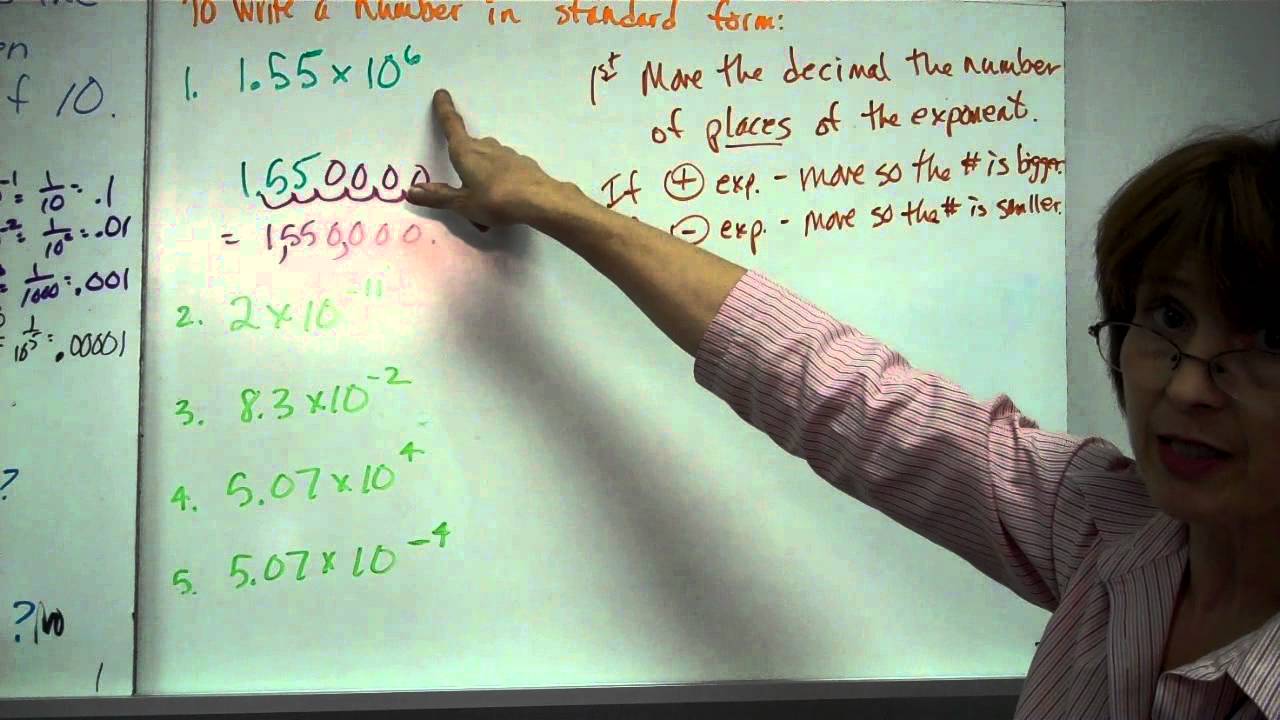 the
en
f 10.
-1 1/10 = .1
-2 = 1/10² = .01
1/1000 = .001
= 1/10⁵ = .00001
?
?
1
To Write a Number in standard form:
1. 1.55 × 10⁶
1,550000
= 1,550,000.
2. 2 × 10⁻¹¹
3. 8.3 × 10⁻²
4. 5.07 × 10⁴
5. 5.07 × 10⁻⁴
1st Move the decimal the number
of places of the exponent.
If + exp. - move so the # is bigger.
- exp. - move so the # is smaller.